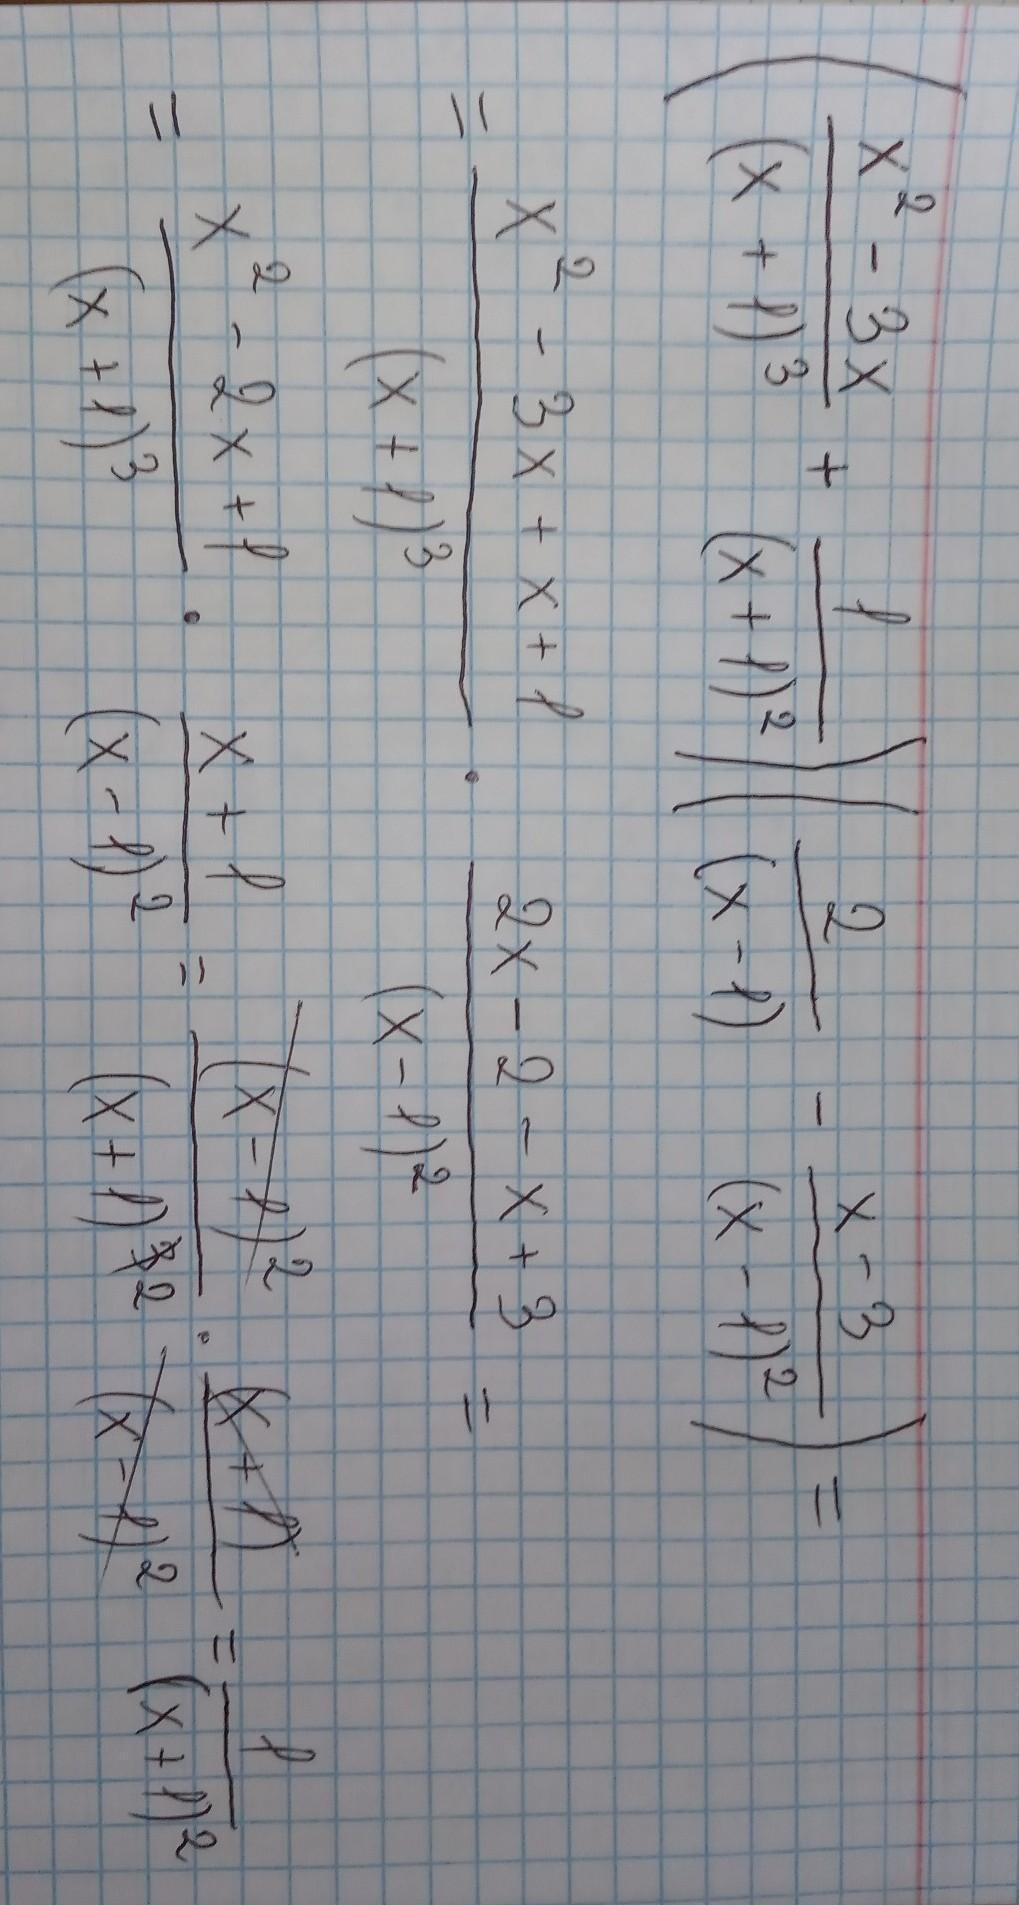 ((x² - 3x)/(x + 1)³ + 1/(x + 1)²)(2/(x - 1) - (x - 3)/(x - 1)²) =
= (x² - 3x + x + 1)/(x + 1)³ · (2x - 2 - x + 3)/(x - 1)² =
= (x² - 2x + 1)/(x + 1)³ · (x + 1)/(x - 1)² = (x - 1)²/(x + 1)³² · (x + 1)/(x - 1)² = 1/(x + 1)²